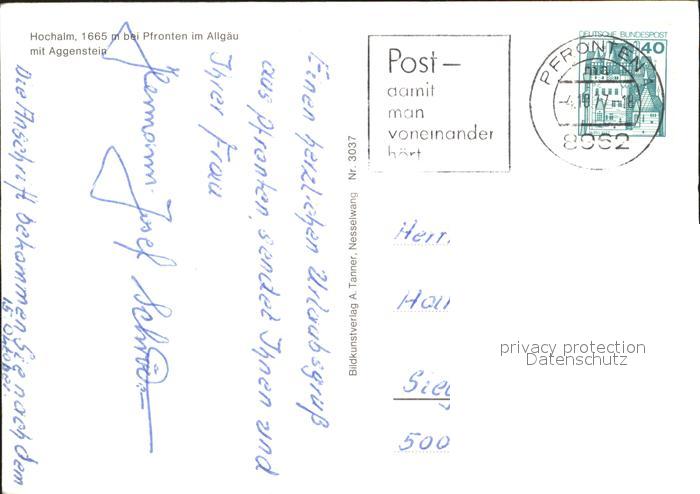 Hochalm, 1665 m bei Pfronten im Allgäu
mit Aggenstein
Einen herzlichen Urlaubsgruß
aus Pfronten, sendet Ihnen und
Ihrer Frau
Hermann-Josef
Die Anschrift bekommen Sie nach dem
15 Oktober.
Bildkunstverlag A. Tanner, Nesselwang Nr. 3037
Post –
damit
man
voneinander
hört
DEUTSCHE BUNDESPOST
40
PFRONTEN
8962
Herr.
Sie
500
privacy protection
Datenschutz